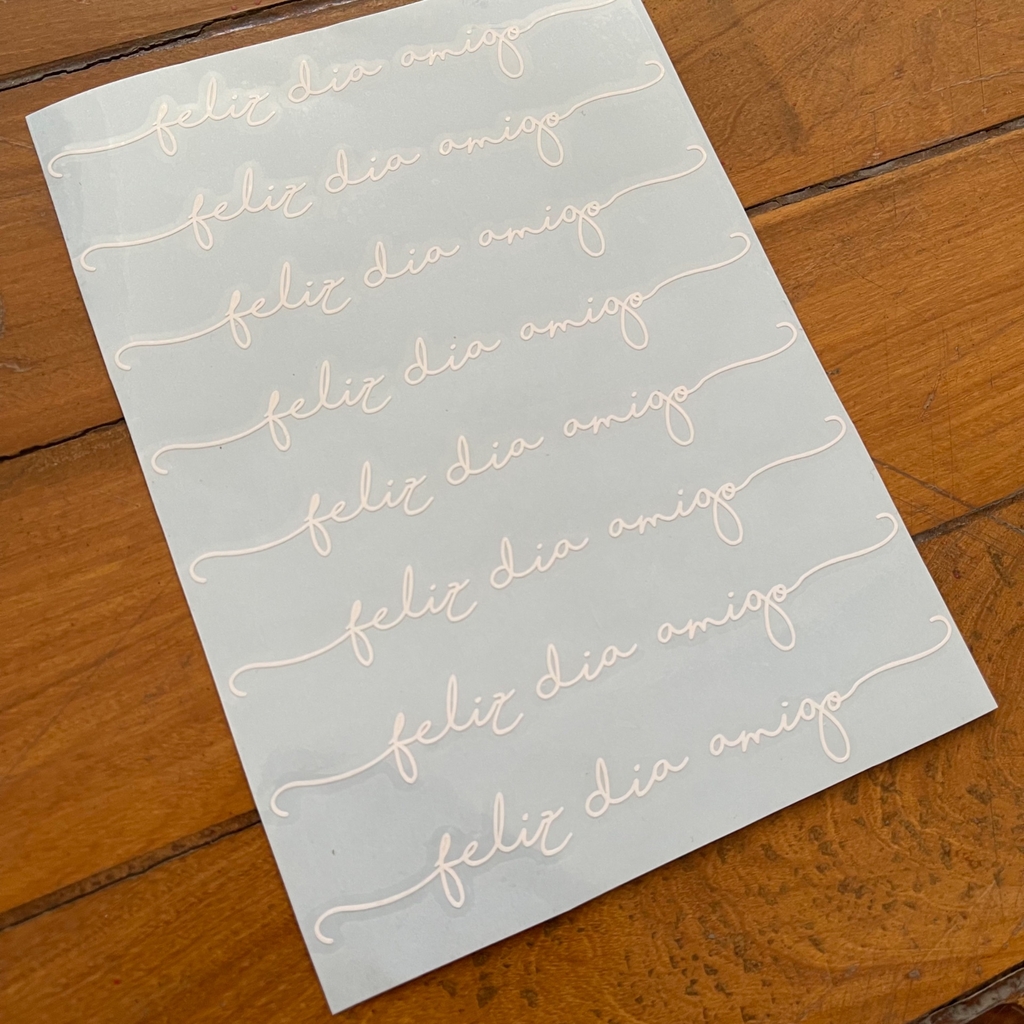 feliz dia amigo
feliz dia amigo
feliz dia amigo
feliz dia amigo
feliz dia amigo
feliz dia amigo
feliz dia amigo
feliz dia amigo